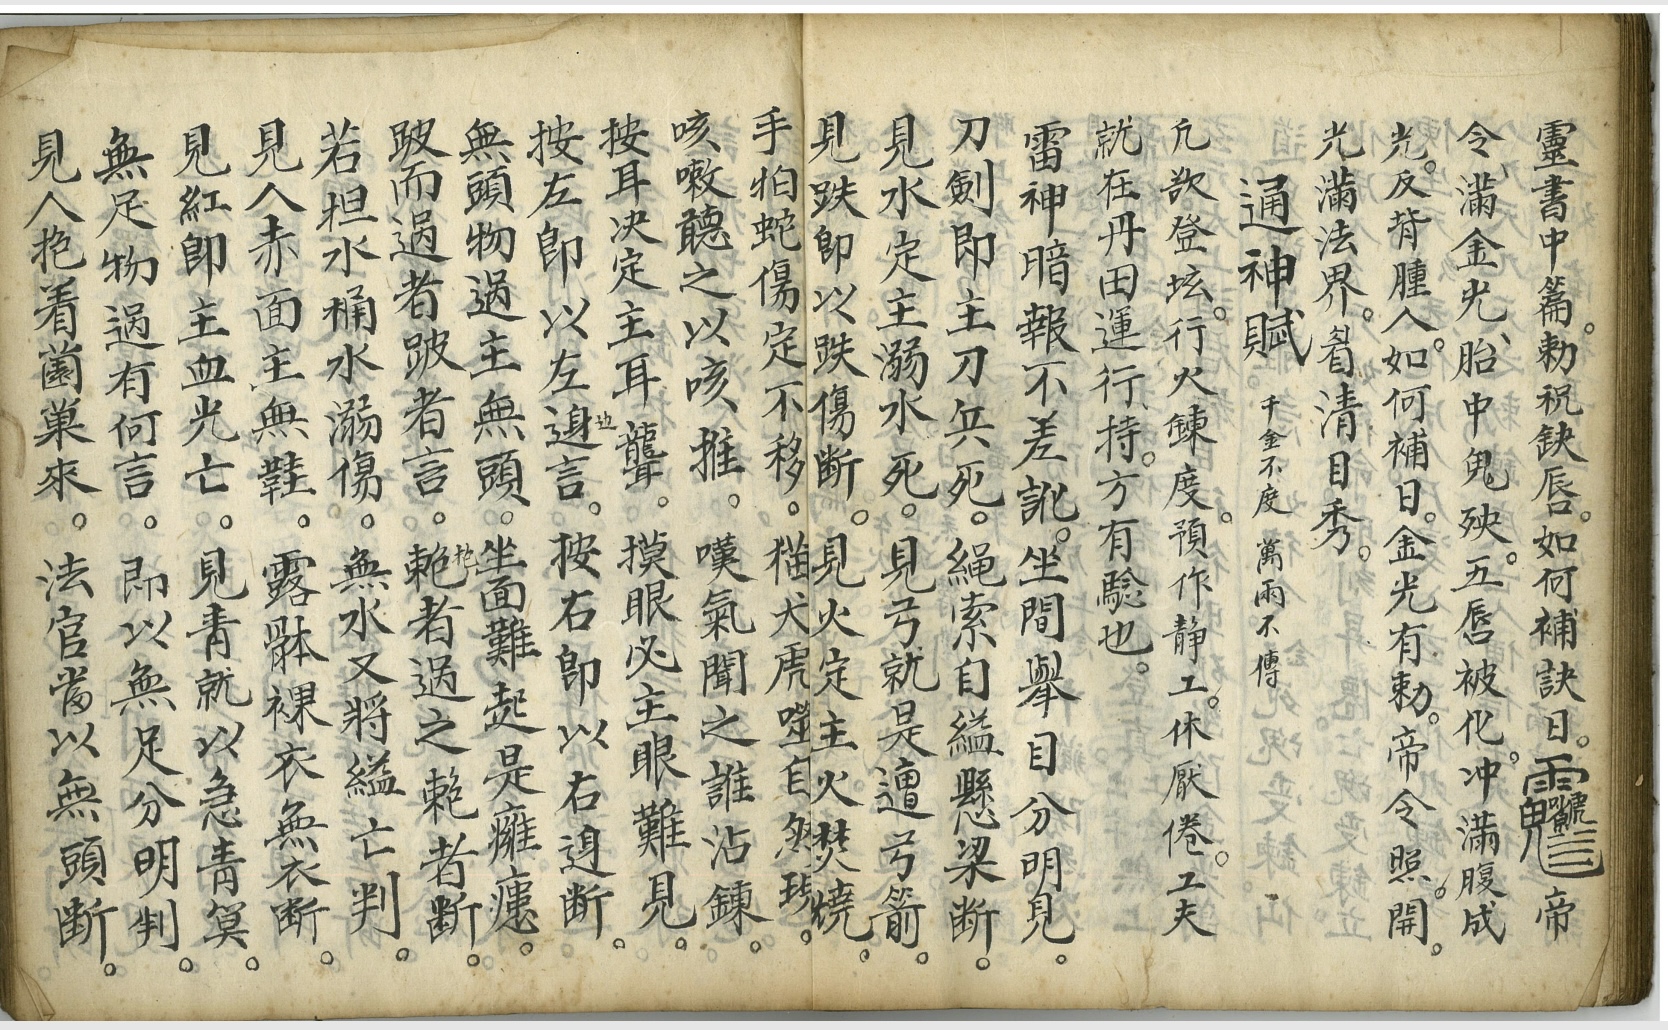 靈書中篇。勅祝缺唇。如何補訣曰。帝
令、滿金光、胎中鬼殃。五唇被化。冲滿腹成
光。反背腫人。如何補曰。金光有勅。帝令照。開。
光滿法界。眉清目秀。
通神賦 千金不度 萬兩不傳
凢欲登坛。行火鍊度。預作静工。休厭倦。工夫
就在丹田運行持。方有驗也。
雷神暗報不差訛。坐間舉目分明見。
刀劍即主刀兵死。繩索自縊懸梁断。
見水定主溺水死。見弓就是遭弓箭。
見跌即以跌傷断。見火定主火焚燒。
手怕蛇傷定不移。猫犬虎噬自然
咳嗽聽之以咳推。嘆氣聞之誰沾鍊。
按耳决定主耳聾。摸眼必主眼難見。
按左即以左邊言。按右即以右邊断。
無頭物過主無頭。坐面難起是癱
跛而過者跛者言。抱者過之者断。
若担水桶水溺傷。無水又將縊亡判。
見人赤面主無鞋。露骵裸衣無衣断。
見紅即主血光亡。見青就以急青筭。
無足物過有何言。即以無足分明判。
見人抱着菌菓來。法官當以無頭断。